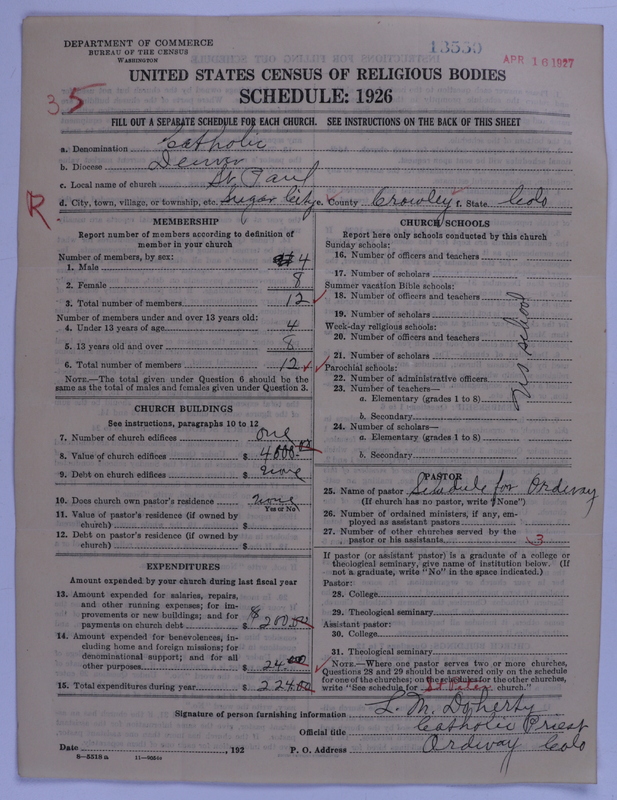 DEPARTMENT OF COMMERCE
BUREAU OF THE CENSUS
WASHINGTON
13559
APR 16 1927
UNITED STATES CENSUS OF RELIGIOUS BODIES
SCHEDULE: 1926
35
FILL OUT A SEPARATE SCHEDULE FOR EACH CHURCH. SEE INSTRUCTIONS ON THE BACK OF THIS SHEET
a. Denomination Catholic
b. Diocese Denver
c. Local name of church St Paul
d. City, town, village, or township, etc. Sugar City e. County Crowley f. State Colo
R
MEMBERSHIP
Report number of members according to definition of member in your church
Number of members, by sex:
1. Male 4
2. Female 8
3. Total number of members 12
Number of members under and over 13 years old:
4. Under 13 years of age 4
5. 13 years old and over 8
6. Total number of members 12
NOTE.—The total given under Question 6 should be the
same as the total of males and females given under Question 3.
CHURCH BUILDINGS
See instructions, paragraphs 10 to 12
7. Number of church edifices one
8. Value of church edifices $ 4000.00
9. Debt on church edifices $ none
10. Does church own pastor's residence none
Yes or No
11. Value of pastor's residence (if owned by
church) $
12. Debt on pastor's residence (if owned by
church) $
EXPENDITURES
Amount expended by your church during last fiscal year
13. Amount expended for salaries, repairs,
and other running expenses; for im-
provements or new buildings; and for
payments on church debt $ 200.00
14. Amount expended for benevolences, in-
cluding home and foreign missions; for
denominational support; and for all
other purposes $ 24.00
15. Total expenditures during year $ 224.00
CHURCH SCHOOLS
Report here only schools conducted by this church
Sunday schools:
16. Number of officers and teachers
17. Number of scholars
Summer vacation Bible schools:
18. Number of officers and teachers
19. Number of scholars
Week-day religious schools:
20. Number of officers and teachers
21. Number of scholars
Parochial schools:
22. Number of administrative officers
23. Number of teachers—
a. Elementary (grades 1 to 8)
b. Secondary
24. Number of scholars—
a. Elementary (grades 1 to 8)
b. Secondary
No school
PASTOR
25. Name of pastor Schedule for Ordway
(If church has no pastor, write "None")
26. Number of ordained ministers, if any, em-
ployed as assistant pastors
27. Number of other churches served by the
pastor or his assistants 3
If pastor (or assistant pastor) is a graduate of a college or
theological seminary, give name of institution below. (If
not a graduate, write "No" in the space indicated.)
Pastor:
28. College
29. Theological seminary
Assistant pastor:
30. College
31. Theological seminary
NOTE.—Where one pastor serves two or more churches,
Questions 28 and 29 should be answered only on the schedule
for one of the churches; on the schedules for the other churches,
write "See schedule for St Peter church."
Signature of person furnishing information L. M. Doherty
Official title Catholic Priest
Date , 192 P. O. Address Ordway Colo
8—5518a 11—9056a